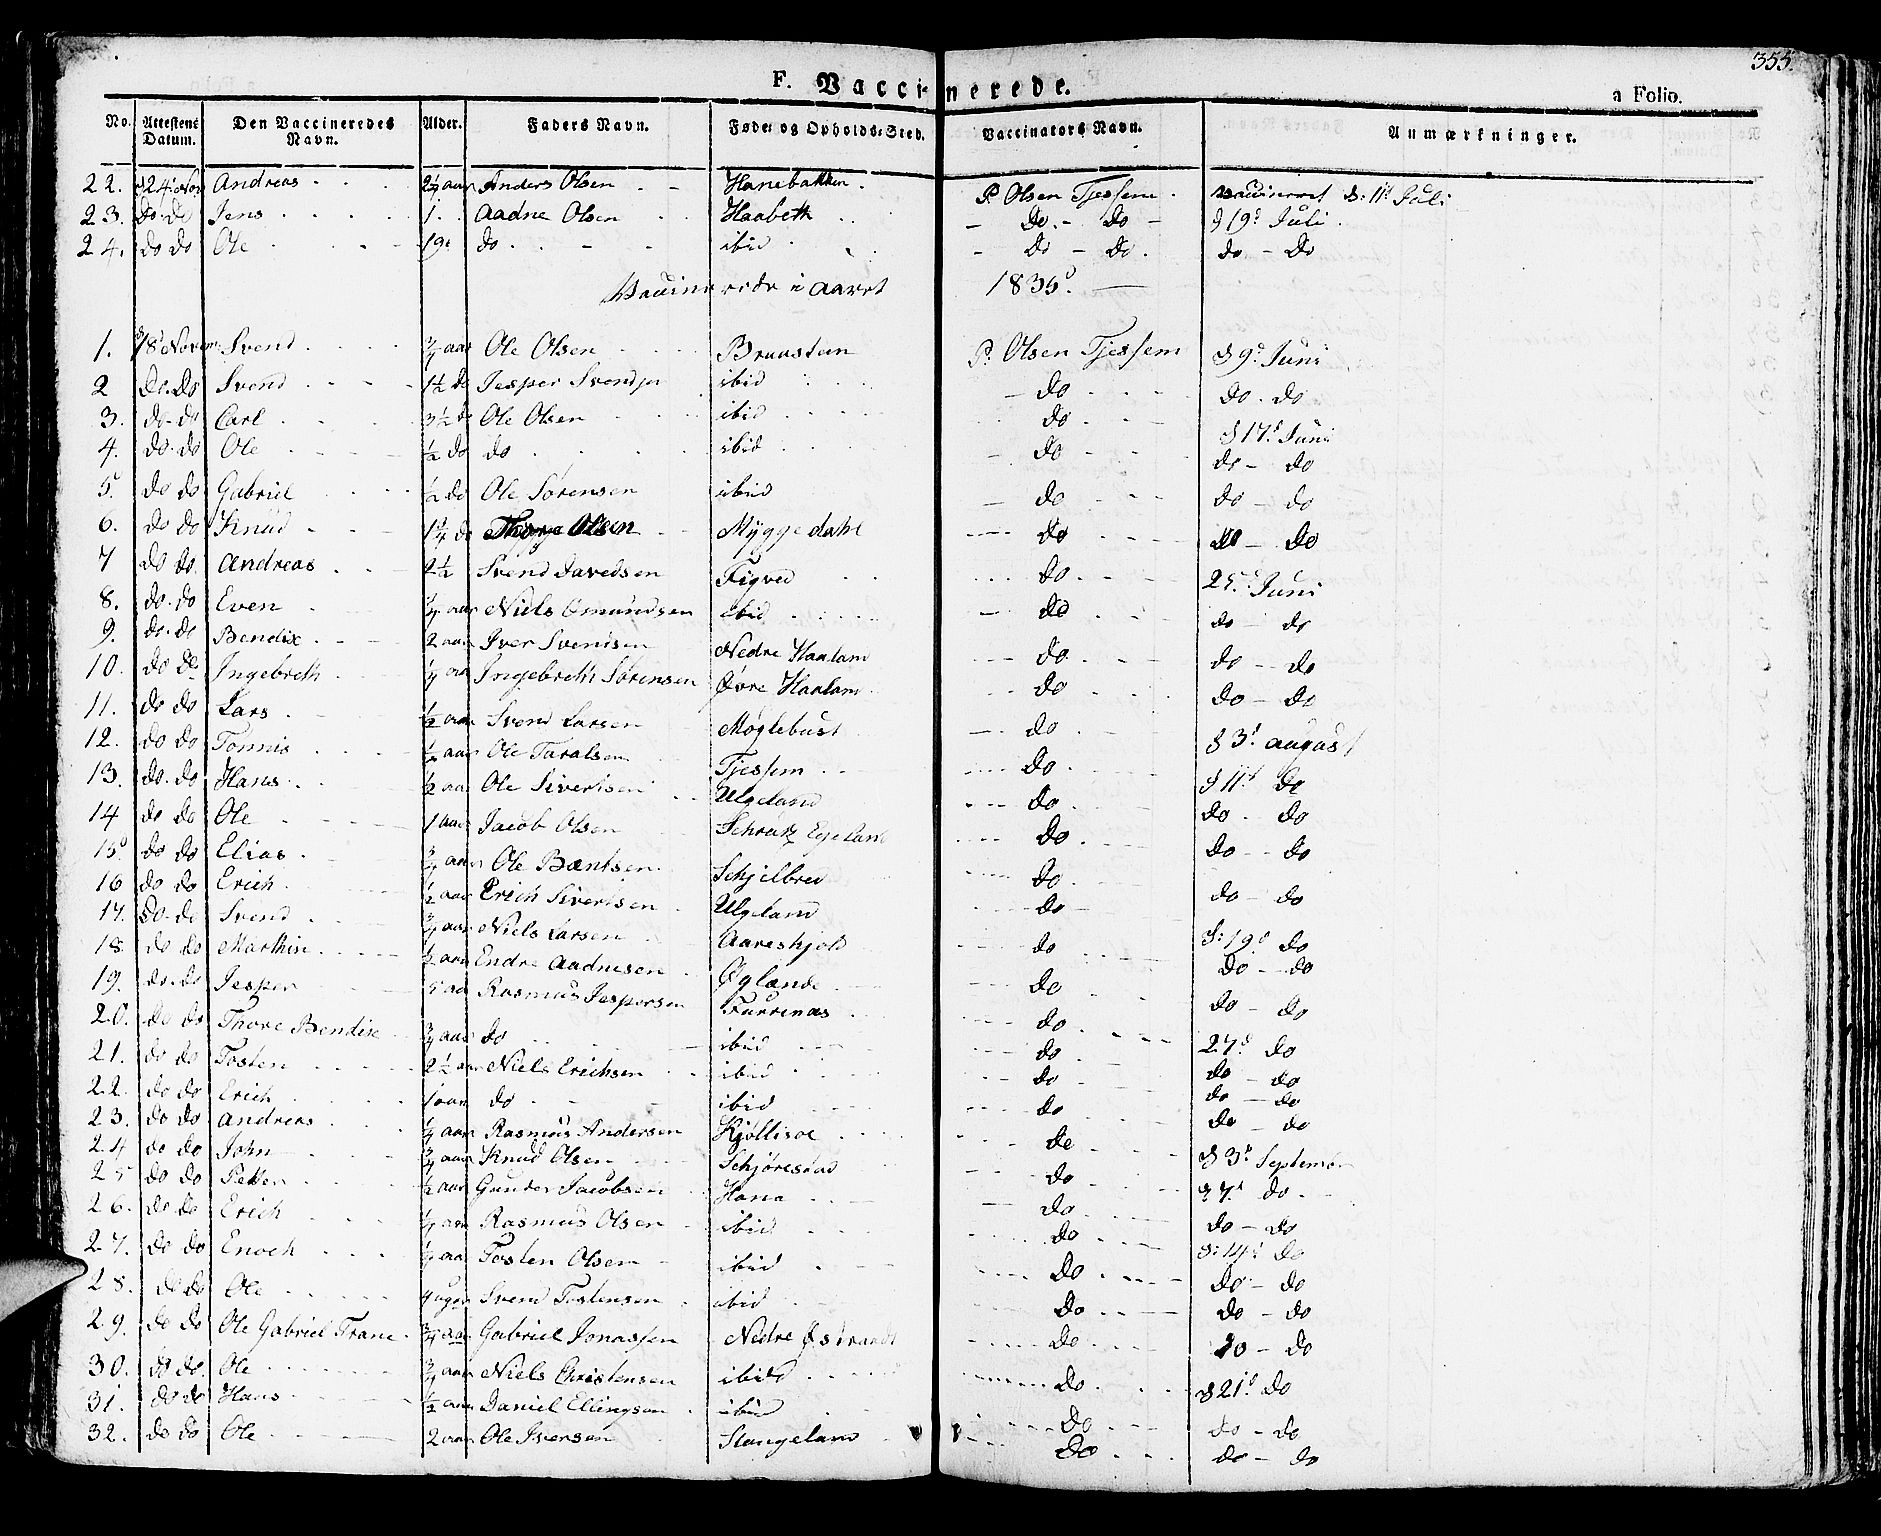 355.
F. Vaccinerede.
a Folio.
No. Attestens Datum. Den Vaccineredes Navn. Alder. Faders Navn. Føde- og Opholds-Sted. Vaccinators Navn. Anmærkninger.
22. Andreas Anders Olsen Hanebakken P. Olsen Tjessem vaccineret d: 11t Juli
23. do. do Jens 1. Aadne Olsen Haabeth do. - do 19d Juli
24. do do Ole do ibid do - do. do - do
Vaccinerede i Aaret 1835.
1. Svend Ole Olsen Bruastein P. Olsen Tjessem 9d Juni
2 do. do Svend 1½ do Jesper Svends. ibid do do. do
3. do. do Carl 3½ do Ole Olsen ibid do 17d Juni
4. do. do Ole ½ do do ibid do do - do
5. do do Gabriel ½ do Ole Sørensen ibid do do - do
6. do do Knud 1¼ do Olsen Myggedahl do do - do
7 do do. Andreas 2½ Svend Davedsen Figved do 25d Juni
8. do. do Even ¼ aar Niels Omundsen ibid do do do
9. do. do Bendix 2 aar Iver Svensen Nedre Haaland do do - do
10. do do Ingebreth aar Ingebreth Sørensen Øvre Haaland do do - do
11. do do Lars ½ aar Svend Larsen Møglebust do 3d August
12. do do Tønnis ½ aar Ole Taralsen Tjessem do 11d do
13. do. do Hans ½ aar Ole Sivertsen Ulgeland do do. do
14 do do Ole 1 aar Jacob Olsen Egeland do do - do
15. do do Elias ¾ aar Ole Bæntsen Schjelbred do do - do
16 do do Erich ½ aar Erich Sivertsen Ulgeland do
17. do. do Svend ¾ aar Niels Larsen Aareskjold do d: 19d do
18. do do Marthin ½ aar Endre Aadnesen Øglænde do do - do
19. do. do Jesper 5 aar Rasmus Jespersen Furrenæs do do - do
20. do do Thore Bendix ¾ aar do ibid do 27d do
21. do do Tosten 2½ aar Niels Erichsen ibid do do - do
22. do do Erich 1 aar do ibid do do - do
23. do do Andreas ¼ aar Rasmus Andersen do do - do
24 do do John ¾ aar Knud Olsen Schjørestad do 3d September
25 do do Petter ½ aar Gunder Jacobsen Hana do 7d do
26. do do Erich aar Rasmus Olsen ibid do do - do
27. do do Enoch aar Tosten Olsen ibid do d: 14d do
28. do do Ole 4 uger Svend Tostensen ibid do do - do
29. do do Ole Gabriel Trane ¾ aar Gabriel Jonassen Nedre Østrandt do do - do
30. do do. Ole ¾ aar Niels Christensen ibid do 21d do
31. do do Hans ½ aar Daniel Ellingsen ibid do do - do
32. do do Ole 2 aar Ole Iversen Stangeland do do - do